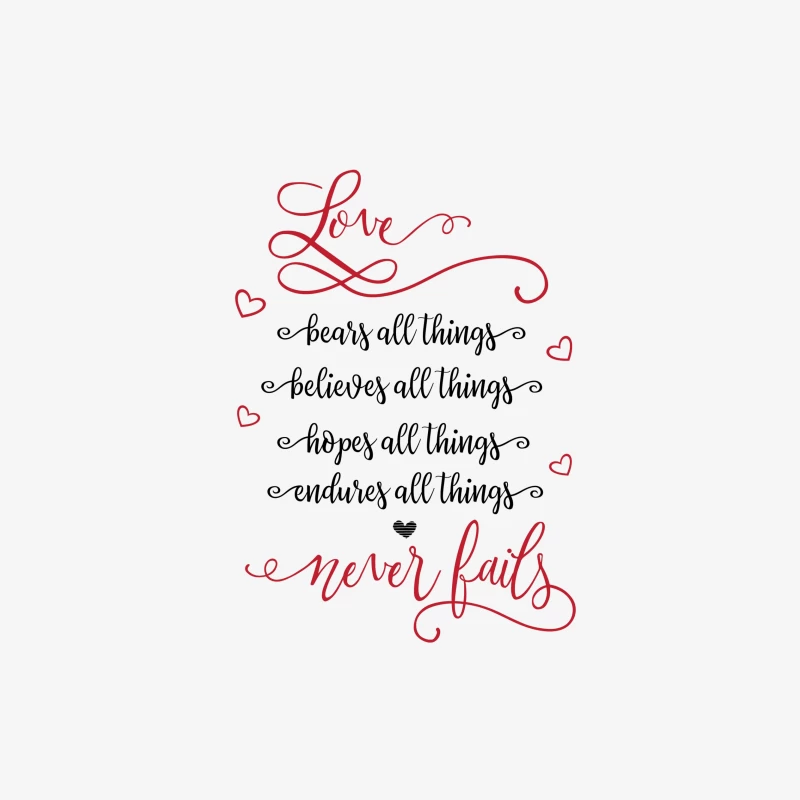 Love
bears all things
believes all things
hopes all things
endures all things
never fails